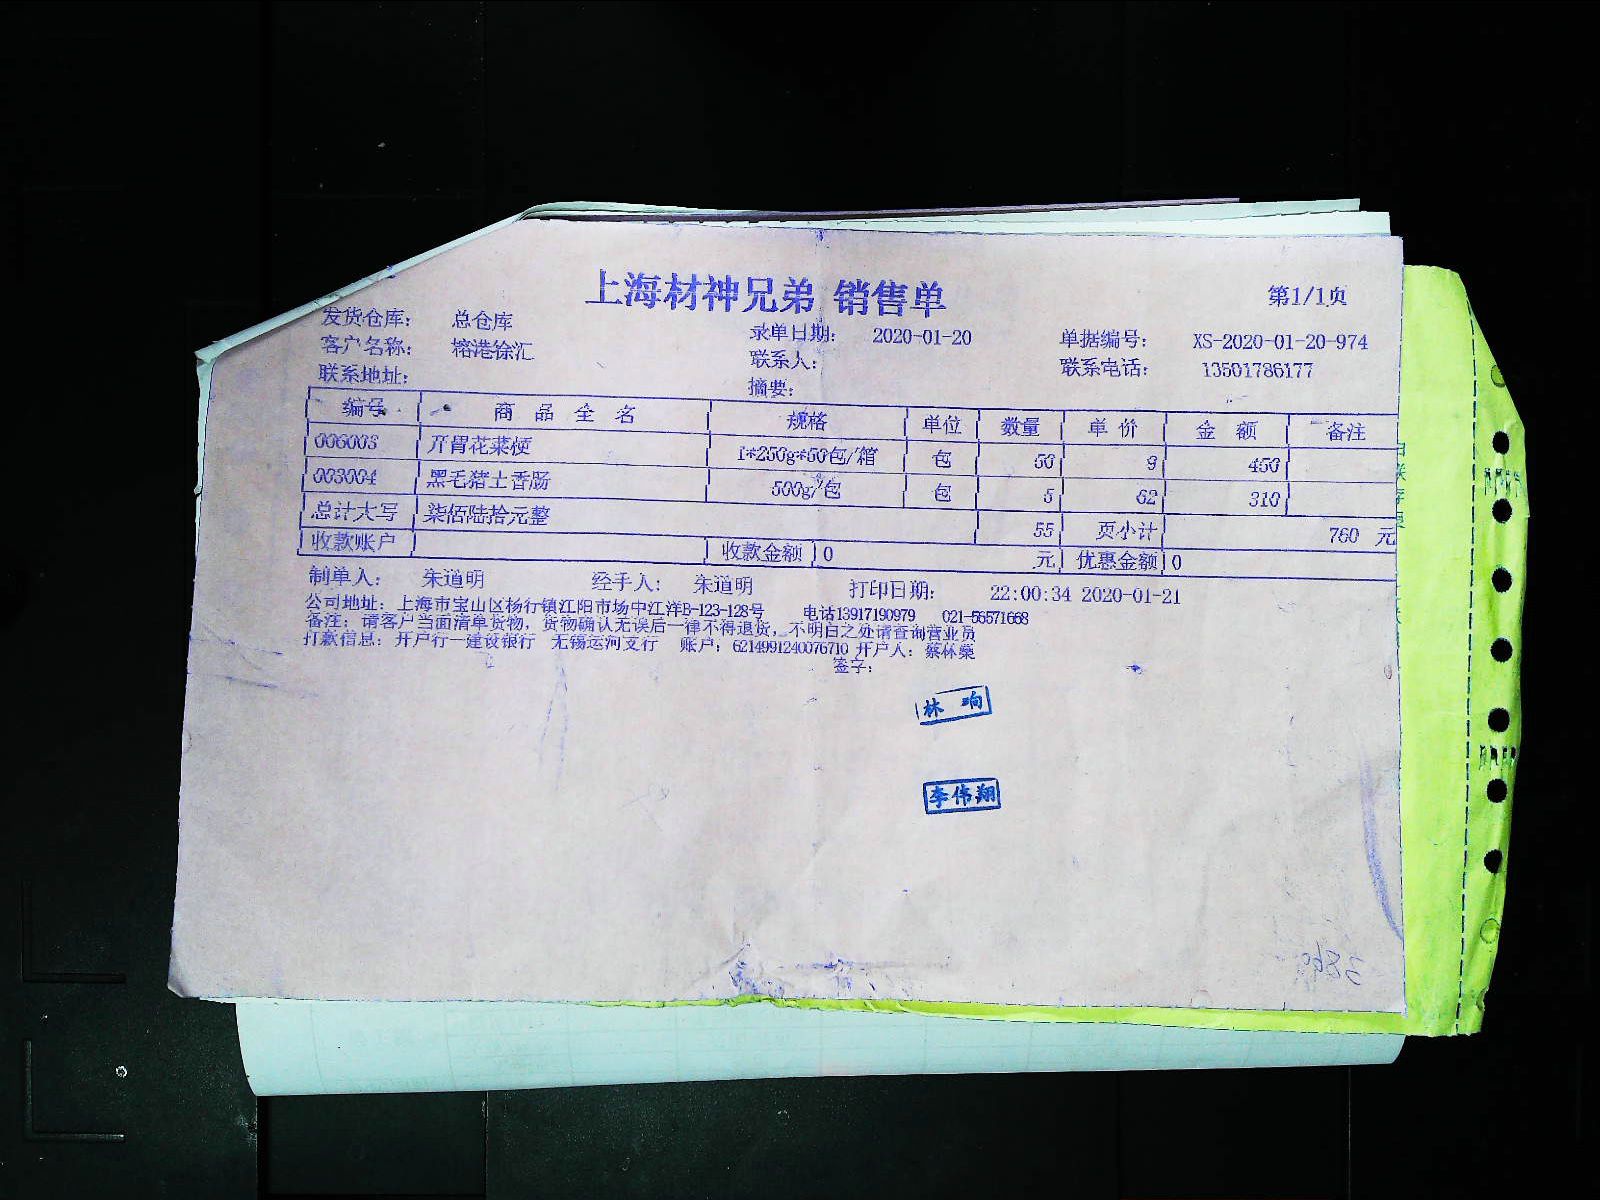 上海材神兄弟 销售单
第1/1页
发货仓库： 总仓库 录单日期： 2020-01-20 单据编号： XS-2020-01-20-974
客户名称： 榕港徐汇 联系人： 联系电话： 13501786177
联系地址： 摘要：
编号 商品全名 规格 单位 数量 单价 金额 备注
006003 开胃花菜梗 1*250g*50包/箱 包 50 9 450
003004 黑毛猪土香肠 500g/包 包 5 62 310
总计大写 柒佰陆拾元整 55 页小计 760 元
收款账户 收款金额 0 元 优惠金额 0
制单人： 朱道明 经手人： 朱道明 打印日期： 22:00:34 2020-01-21
公司地址：上海市宝山区杨行镇江阳市场中江洋B-123-128号 电话13917190979 021-56571668
备注：请客户当面清单货物，货物确认无误后一律不得退货，不明白之处请查询营业员
打款信息：开户行一建设银行 无锡运河支行 账户：6214991240076710 开户人：蔡林燊
签字：
林 垧
李伟翔